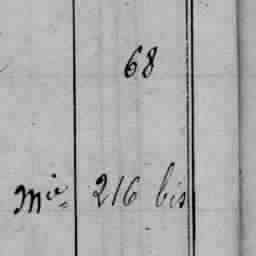 68
Mie 216 bis